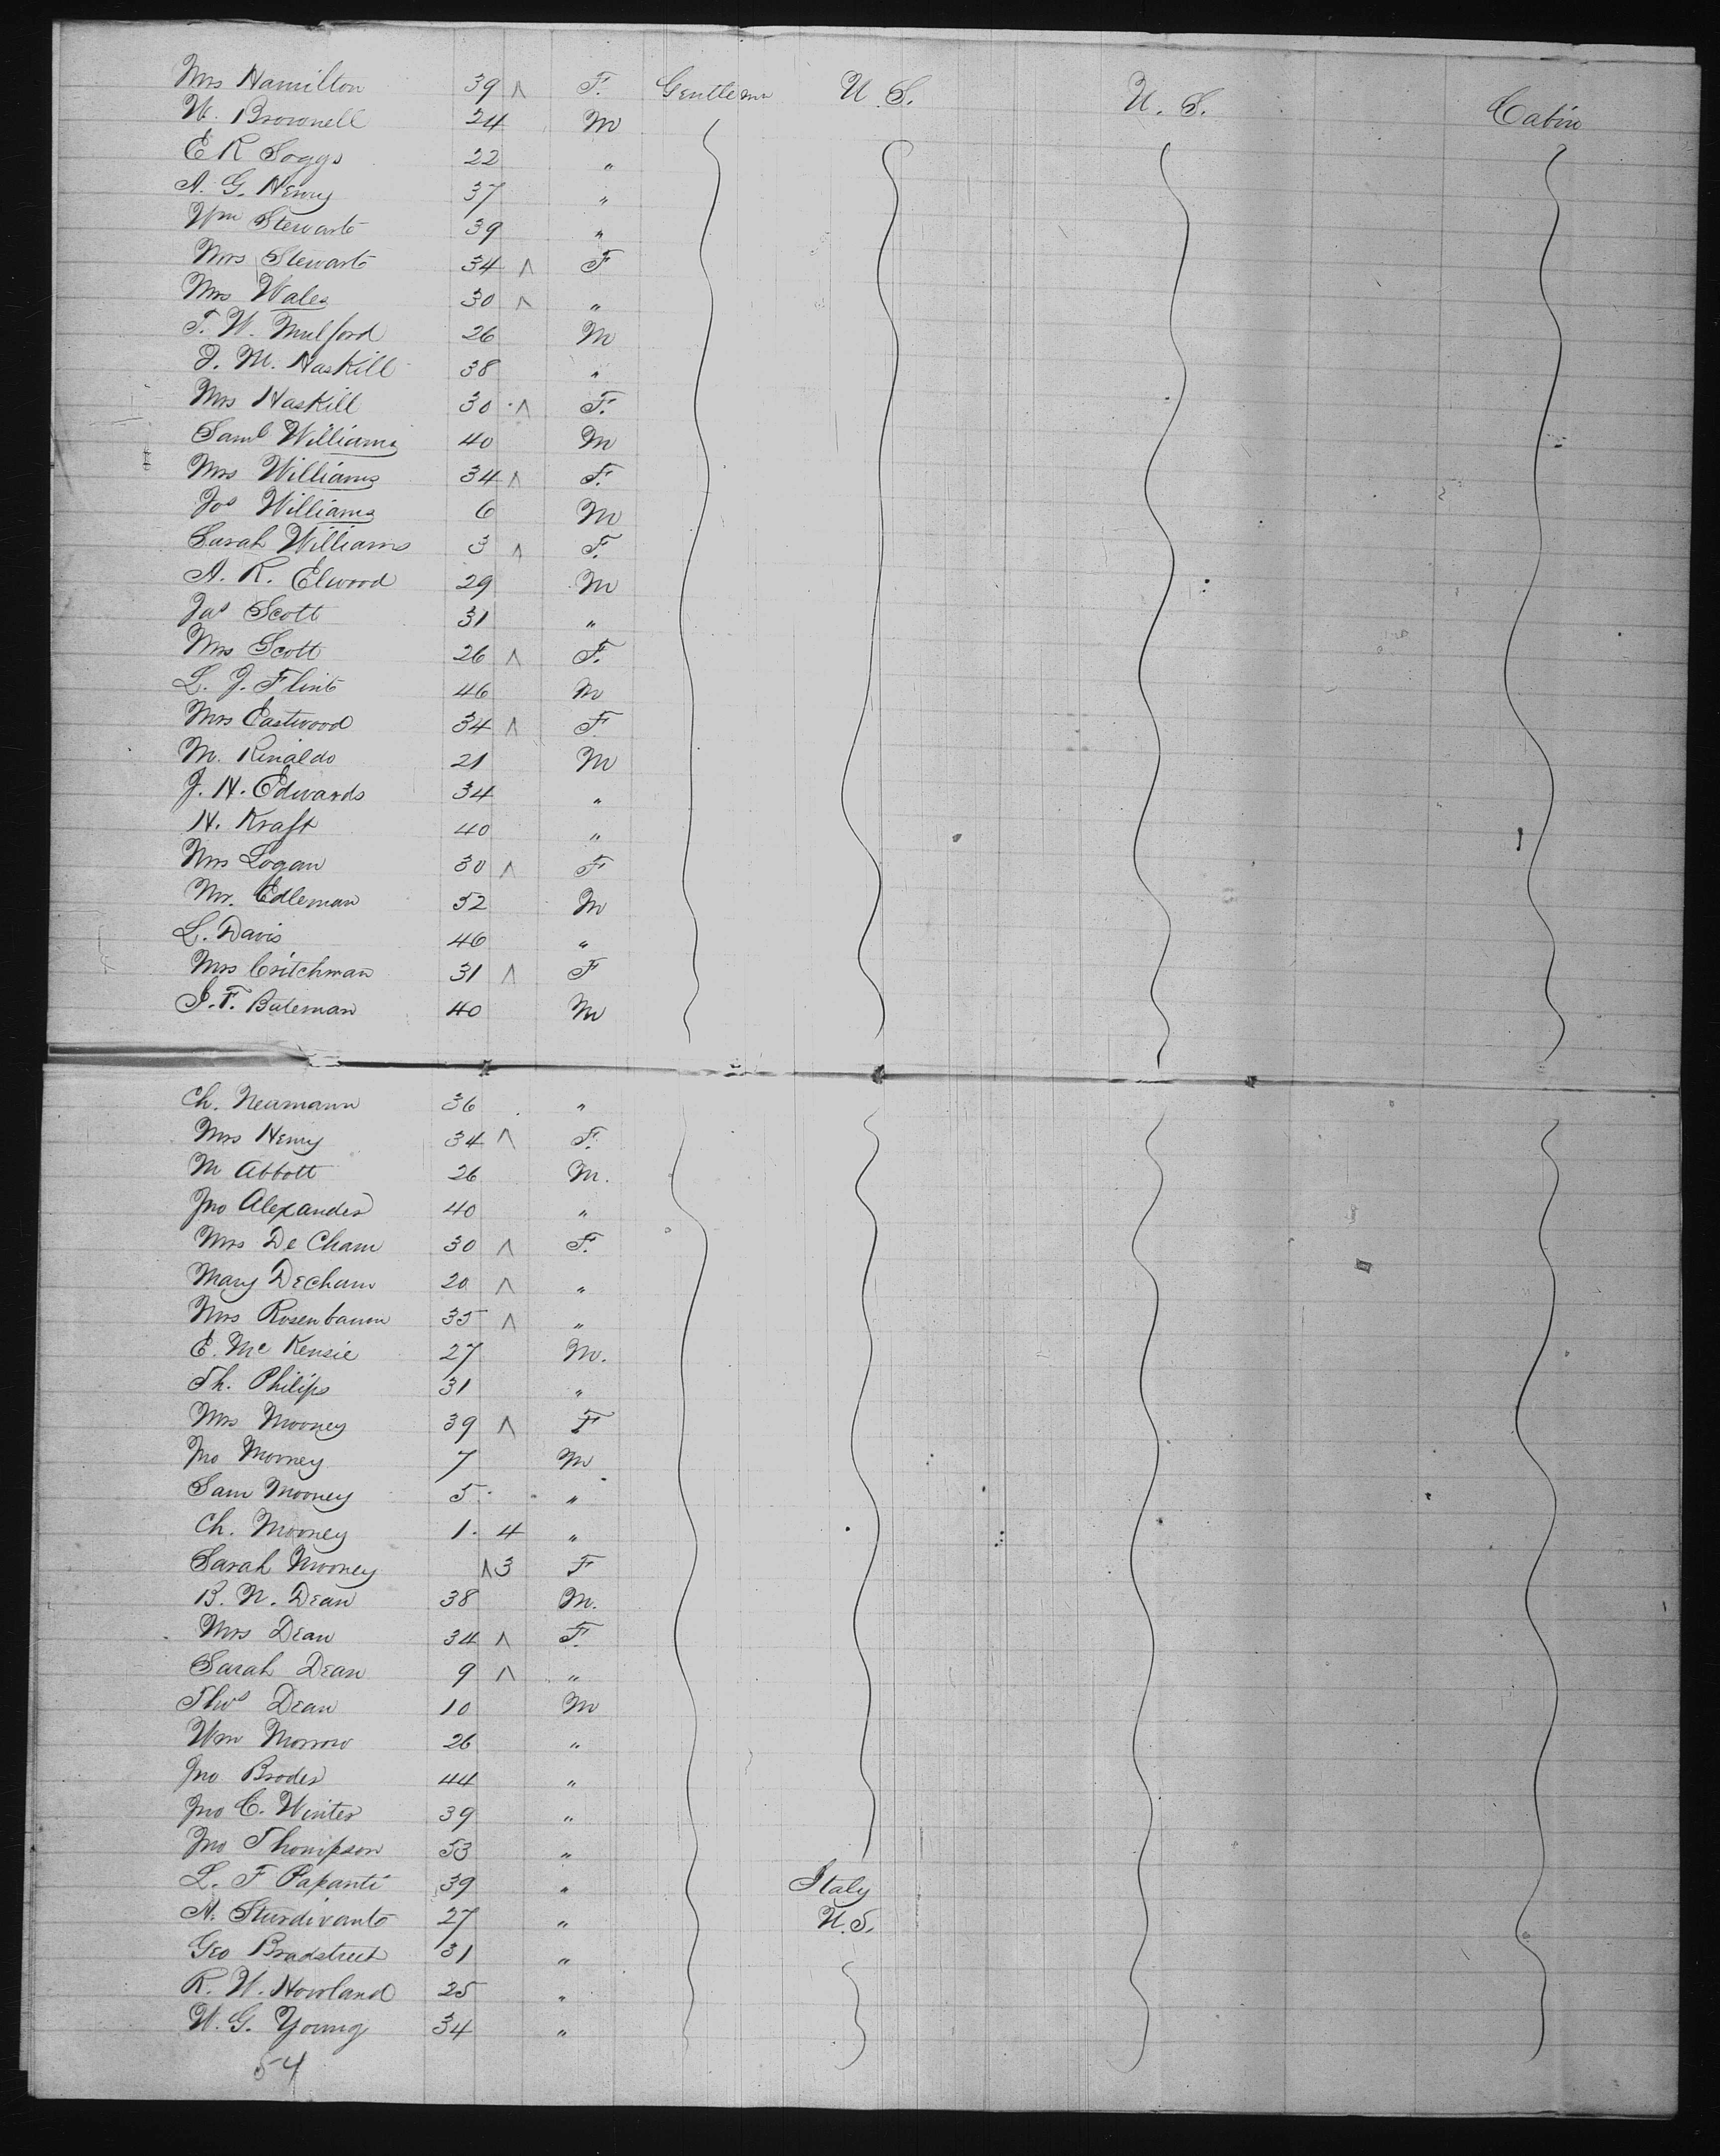 Mrs Hamilton 39 ^ F. Gentlemn U. S. U. S. Cabin
W. Brownell 24 M
E R Soggs 22 "
A. G. Henry 37 "
Wm Stewart 39 "
Mrs Stewart 34 ^ F
Mrs Wales 30 ^ "
T. W. Mulford 26 M
J. M. Haskill 38 "
Mrs Haskill 30 ^ F.
Saml Williams 40 M
Mrs Williams 34 ^ F.
Jos Williams 6 M
Sarah Williams 3 ^ F.
A. R. Elwood 29 M
Jas Scott 31 "
Mrs Scott 26 ^ F.
L. J. Flint 46 M
Mrs Eastwood 34 ^ F
M. Rinaldo 21 M
J. H. Edwards 34 "
H. Kraft 40 "
Mrs Logan 30 ^ F
Mr. Edleman 52 M
L. Davis 46 "
Mrs Critchman 31 ^ F
J. F. Bateman 40 M
Ch. Neumann 36 "
Mrs Henry 34 ^ F.
M Abbott 26 M.
Jno Alexander 40 "
Mrs De Cham 30 ^ F.
Mary Decham 20 ^ "
Mrs Rosenbaum 35 ^ "
E. Mc Kensie 27 M.
Th. Philips 31 "
Mrs Mooney 39 ^ F
Jno Mooney 7 M
Sam Mooney 5 "
Ch. Mooney 1. 4 "
Sarah Mooney ^ 3 F
B. N. Dean 38 M.
Mrs Dean 34 ^ F.
Sarah Dean 9 ^ "
Thos Dean 10 M
Wm Morrow 26 "
Jno Broder 44 "
Jno C. Winter 39 "
Jno Thompson 53 "
L. F Papanti 39 " Italy
A. Sturdivant 27 " U.S.
Geo Bradstreet 31 "
R. W. Howland 25 "
W. G. Young 34 "
54